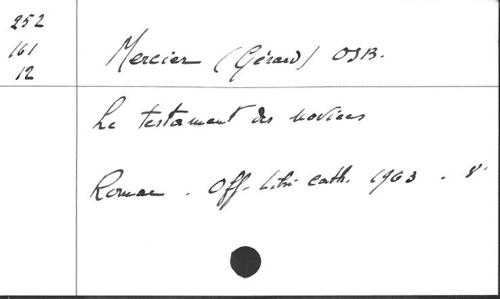 252
161
12
Mercier (Gérard) OSB.
Le testament des novices
Romae . Off. Libri Cath. 1963 . 8°